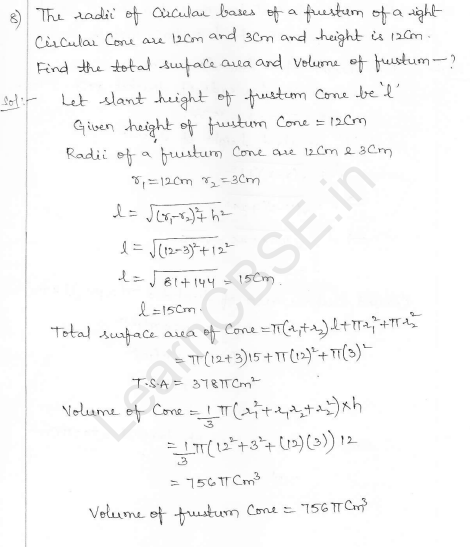 8) The radii of Circular bases of a frustum of a right
Circular Cone are 12cm and 3cm and height is 12cm.
Find the total surface area and volume of frustum—?
Sol:- Let slant height of frustum cone be 'l'
Given height of frustum Cone = 12cm
Radii of a frustum cone are 12cm & 3cm
r₁=12cm r₂=3cm
l = √(r₁-r₂)²+h²
l = √(12-3)²+12²
l = √81+144 = 15cm.
l=15cm.
Total surface area of Cone = π(r₁+r₂)l+πr₁²+πr₂²
= π(12+3)15+π(12)²+π(3)²
T.S.A = 378πCm²
Volume of Cone = 1/3 π(r₁²+r₁r₂+r₂²)×h
= 1/3 π(12²+3²+(12)(3))12
= 756πCm³
Volume of frustum cone = 756πCm³
LearnCBSE.in